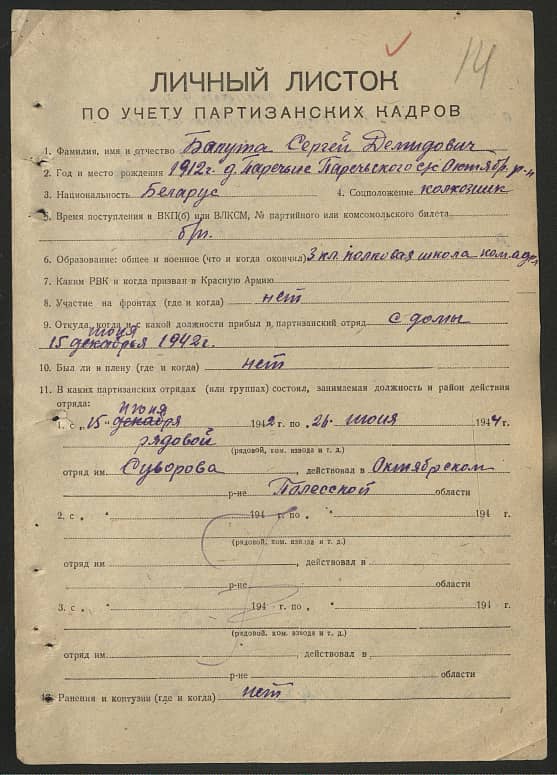 14
ЛИЧНЫЙ ЛИСТОК
ПО УЧЕТУ ПАРТИЗАНСКИХ КАДРОВ
1. Фамилия, имя и отчество Бапута Сергей Демидович
2. Год и место рождения 1912г. д. Паречье Паречьского с/с Октябр. р-н
3. Национальность Беларус 4. Соцположение колхозник
5. Время поступления и ВКП(б) или ВЛКСМ, № партийного или комсомольского билета
б/п.
6. Образование: общее и военное (что и когда окончил) 3 кл. полковая школа
7. Каким РВК и когда призван в Красную Армию
8. Участие на фронтах (где и когда) нет
9. Откуда, когда и с какой должности прибыл в партизанский отряд с домы
июня
15 декабрья 1942г.
10. Был ли и плену (где и когда) нет
11. В каких партизанских отрядах (или группах) состоял, занимаемая должность и район действия
отряда: июня
1. с „15" декабря 1942 г. по 26. июня 1944 г.
рядовой
(рядовой, ком. взвода и т. д.)
отряд им. Суворова, действовал в Октябрском
р-не Полесской области
2. с „ " 194 г. по „ " 194 г.
(рядовой, ком. взвода и т. д.)
отряд им , действовал в
р-не области
3. с „ " 194 г. по „ " 194 г.
(рядовой, ком. взвода и т. д.)
отряд им , действовал в
р-не области
12. Ранения и контузии (где и когда) нет